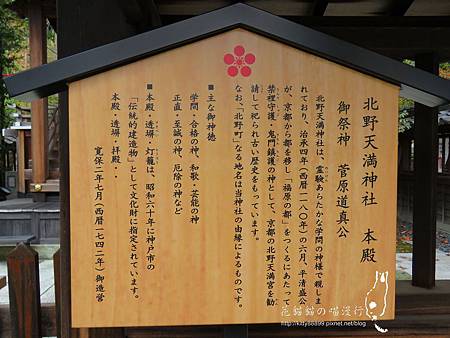 北野天満神社 本殿
御祭神 菅原道真公
北野天満神社は、霊験あらたかな学問の神様で親しま
れており、治承四年(西暦一一八〇年)の六月、平清盛公
が、京都から都を移し「福原の都」をつくるにあたって
禁裡守護・鬼門鎮護の神として、京都の北野天満宮を勧
請して祀られ古い歴史をもっています。
なお、「北野町」なる地名は当神社の由縁によるものです。
■主な御神徳
学問・合格の神、和歌・芸能の神
正直・至誠の神、厄除の神など
■本殿・透塀・灯籠は、昭和六十年に神戸市の
「伝統的建造物」として文化財に指定されています。
本殿・透塀・拝殿・・
寛保二年七月(西暦一七四二年)御造営
花貓貓の喵漫行
http://kitty88899.pixnet.net/blog